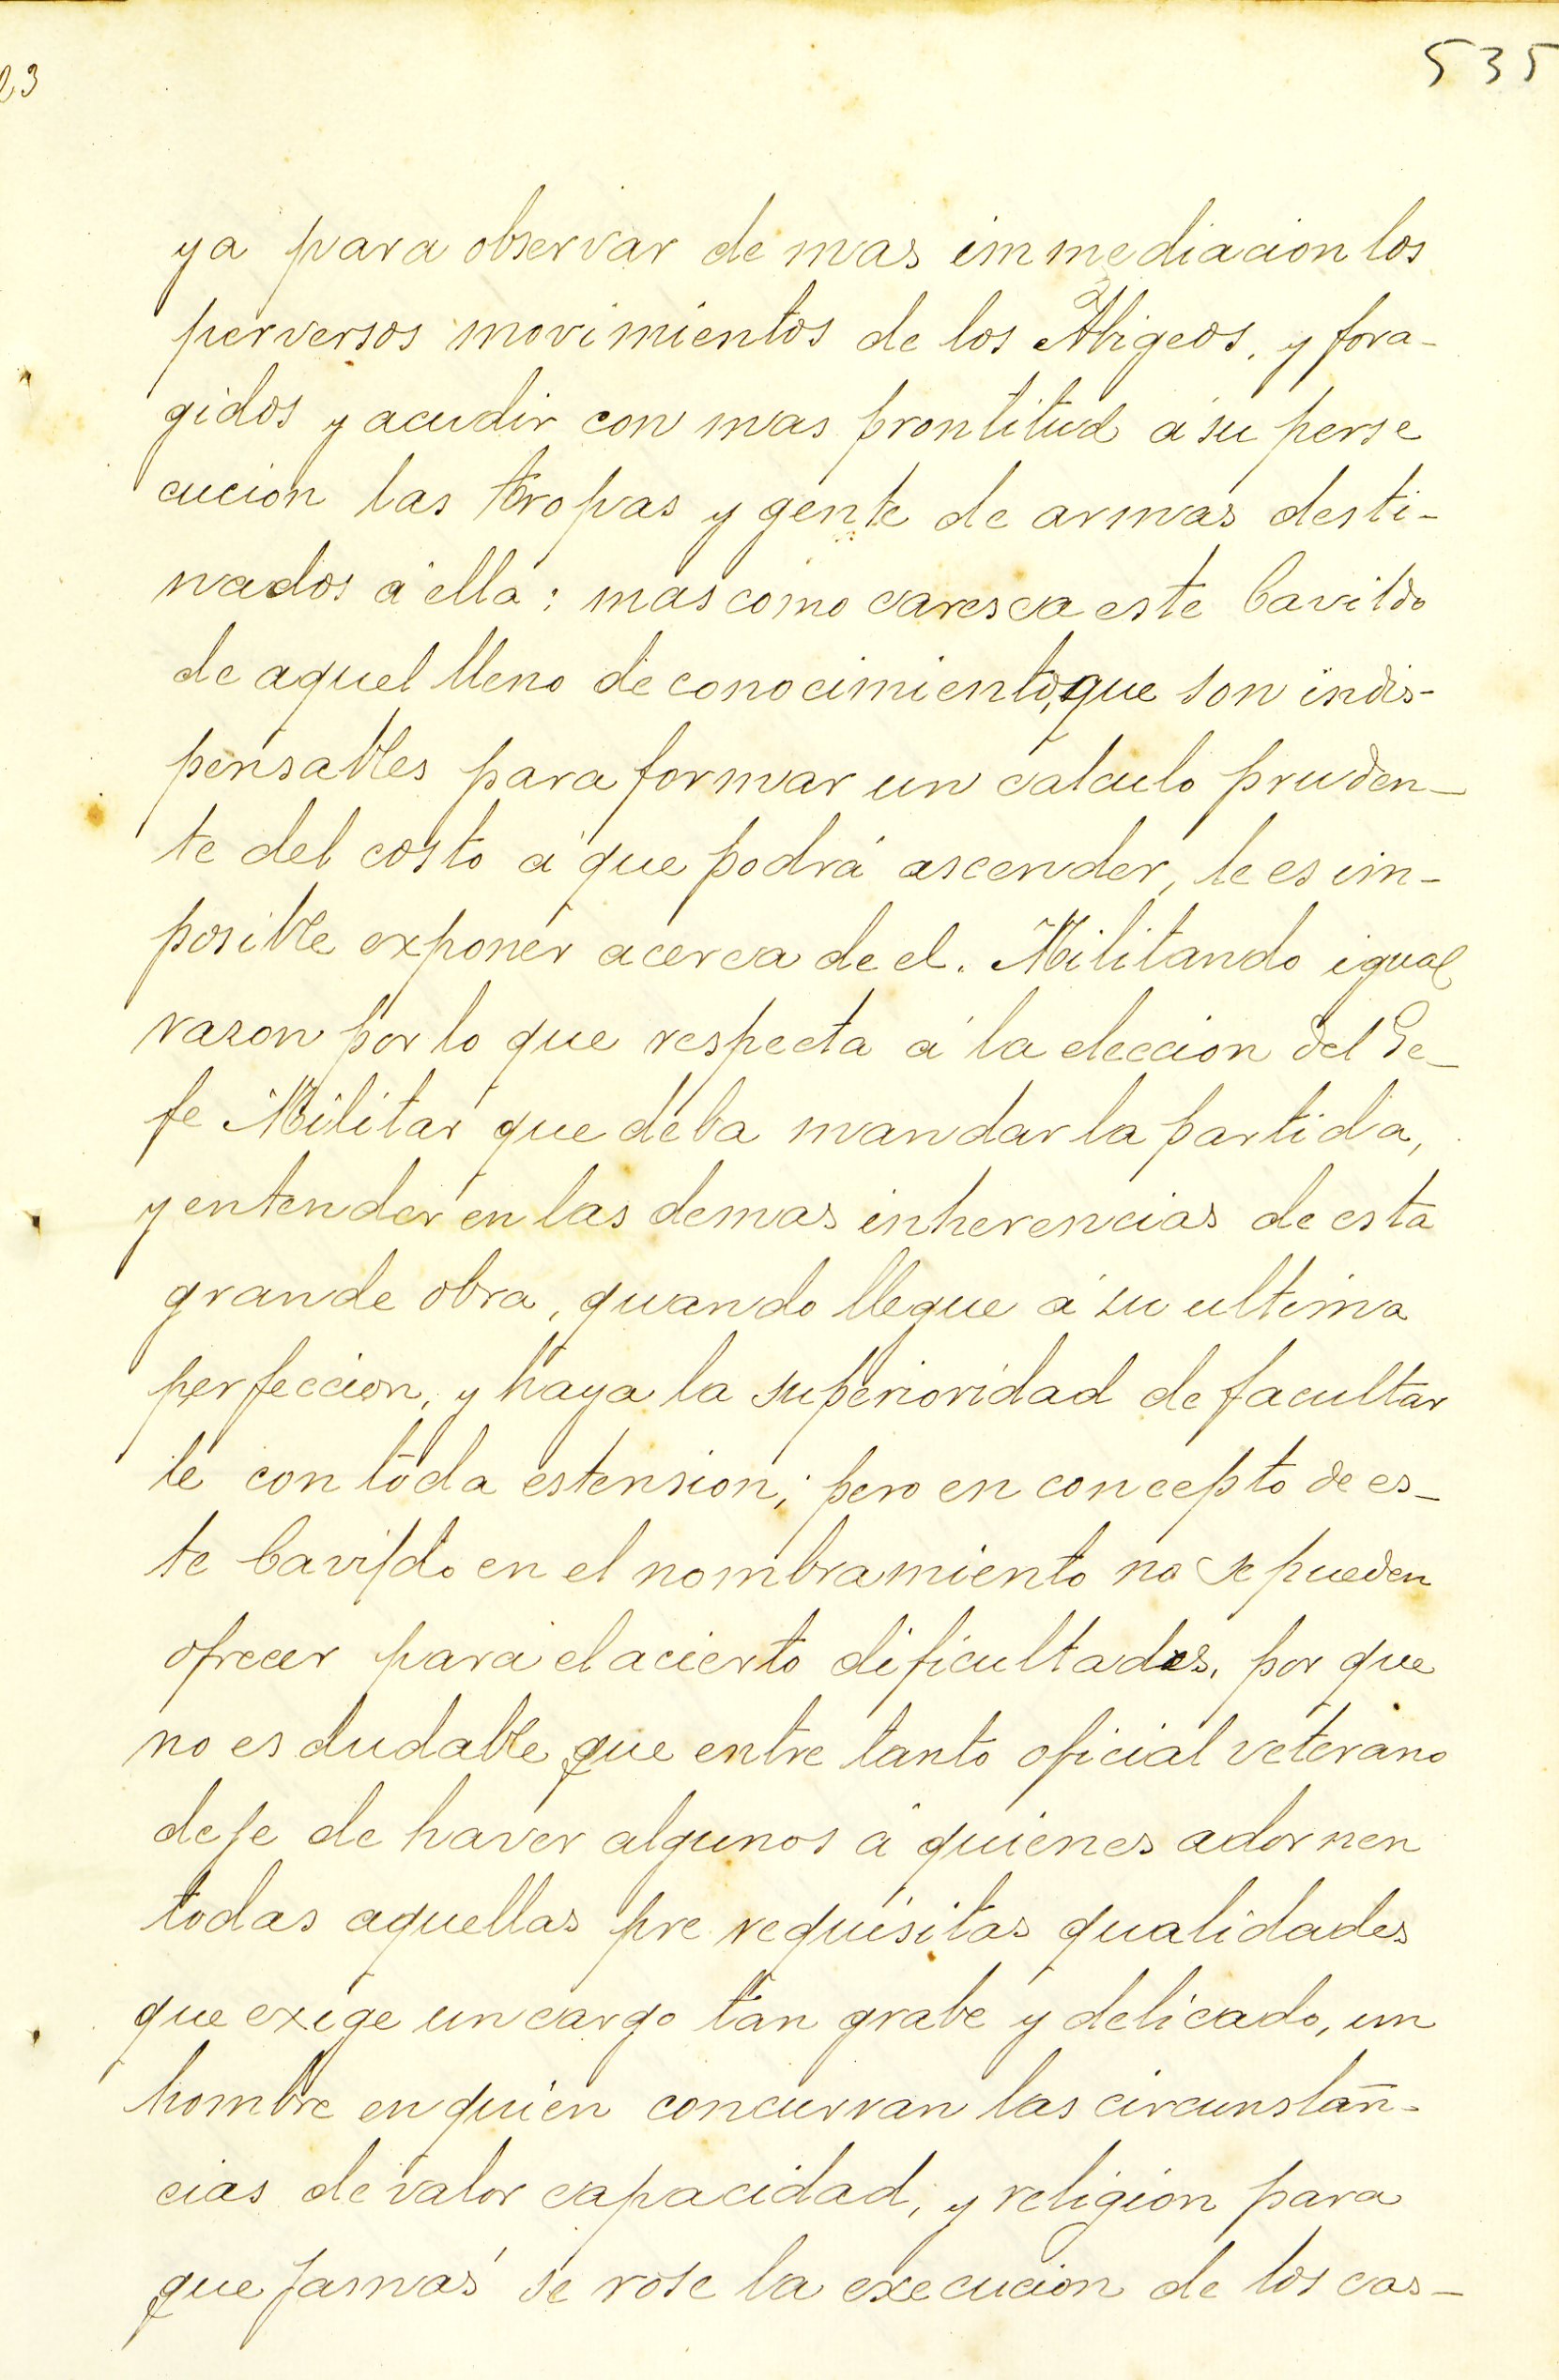 23
535
ya para observar de mas immediacion los
perversos movimientos de los Abigeos, y fora-
gidos y acudir con mas prontitud á su perse
cucion las tropas y gente de armas desti-
nados á ella: mas como caresca este Cavildo
de aquel lleno de conocimientos, que son indis-
pensables para formar un calculo pruden-
te del costo á que podrá ascender, le es im-
posible exponer acerca de el. Militando igual
razon por lo que respecta á la eleccion del Ge-
fe Militar que deba mandar la partida,
y entender en las demas inherencias de esta
grande obra, quando llegue á su ultima
perfeccion, y haya la superioridad de facultar
le con toda estension; pero en concepto de es-
te Cavildo en el nombramiento no se pueden
ofrecer para el acierto dificultades, por que
no es dudable que entre tanto oficial veterano
deje de haver algunos á quienes adornen
todas aquellas pre requisitas qualidades
que exige un cargo tan grabe y delicado, un
hombre en quien concurran las circunstan-
cias de valor capacidad, y religion para
que jamás se rose la execucion de los cas-